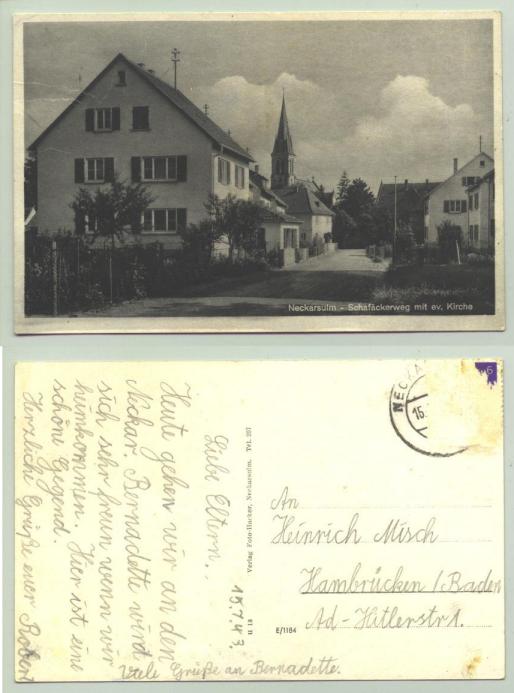 Neckarsulm - Schafäckerweg mit ev. Kirche
15.7.43.
Liebe Eltern..
Heute gehen wir an den
Neckar. Bernadette wird
sich sehr freun wenn wir
heimkommen. Hier ist eine
schöne Gegend.
Herzliche Grüße euer Robert
Viele Grüße an Bernadette.
Verlag Foto-Hacker, Neckarsulm. Tel. 207
U 18
E/1184
NECKA
15.
An
Heinrich Misch
Hambrücken / Baden
Ad-Hitlerstr 1.